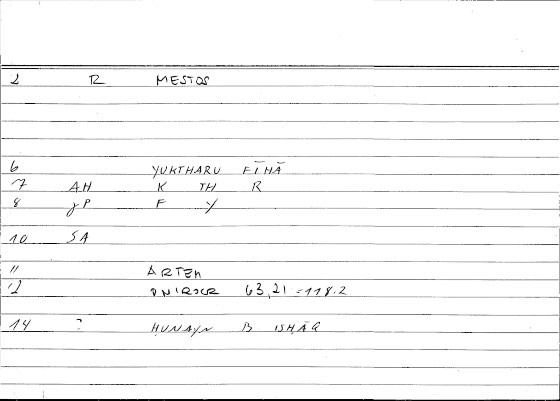 2 R MESTOS
6 YUKTHARU FĪHĀ
7 AH K TH R
8 JP F Y
10 SA
11 ARTEM
12 ONIROCR 63,21 = 118.2
14 ? ḤUNAYN B ISḤĀQ